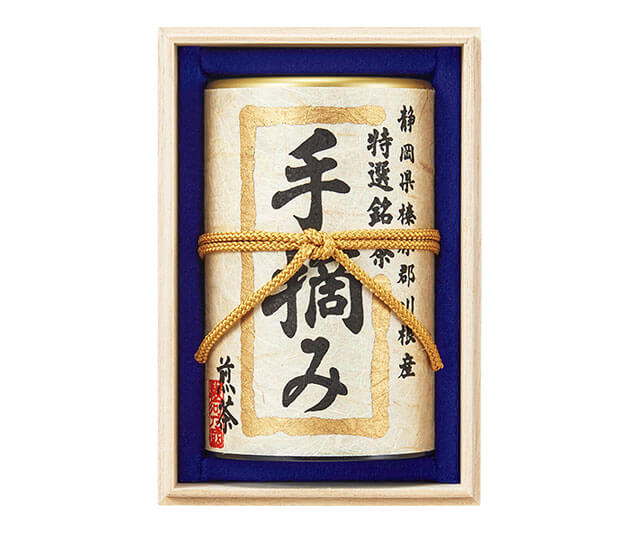 静岡県榛原郡川根産
特選銘茶
手摘み
煎茶